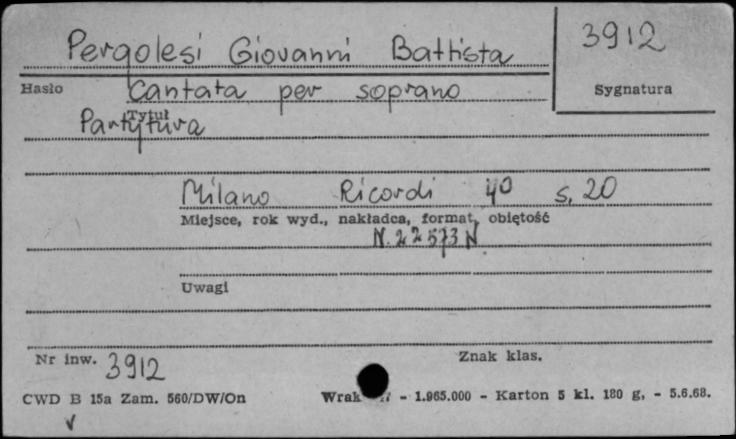 Pergolesi Giovanni Battista
3912
Hasło
Cantata per soprano
Sygnatura
Tytuł
Partytura
Milano Ricordi 4° s. 20
Miejsce, rok wyd., nakładca, format, objętość
N. 22573 N
Uwagi
Nr inw. 3912
Znak klas.
CWD B 15a Zam. 560/DW/On
- 1.965.000 - Karton 5 kl. 180 g, - 5.6.68.